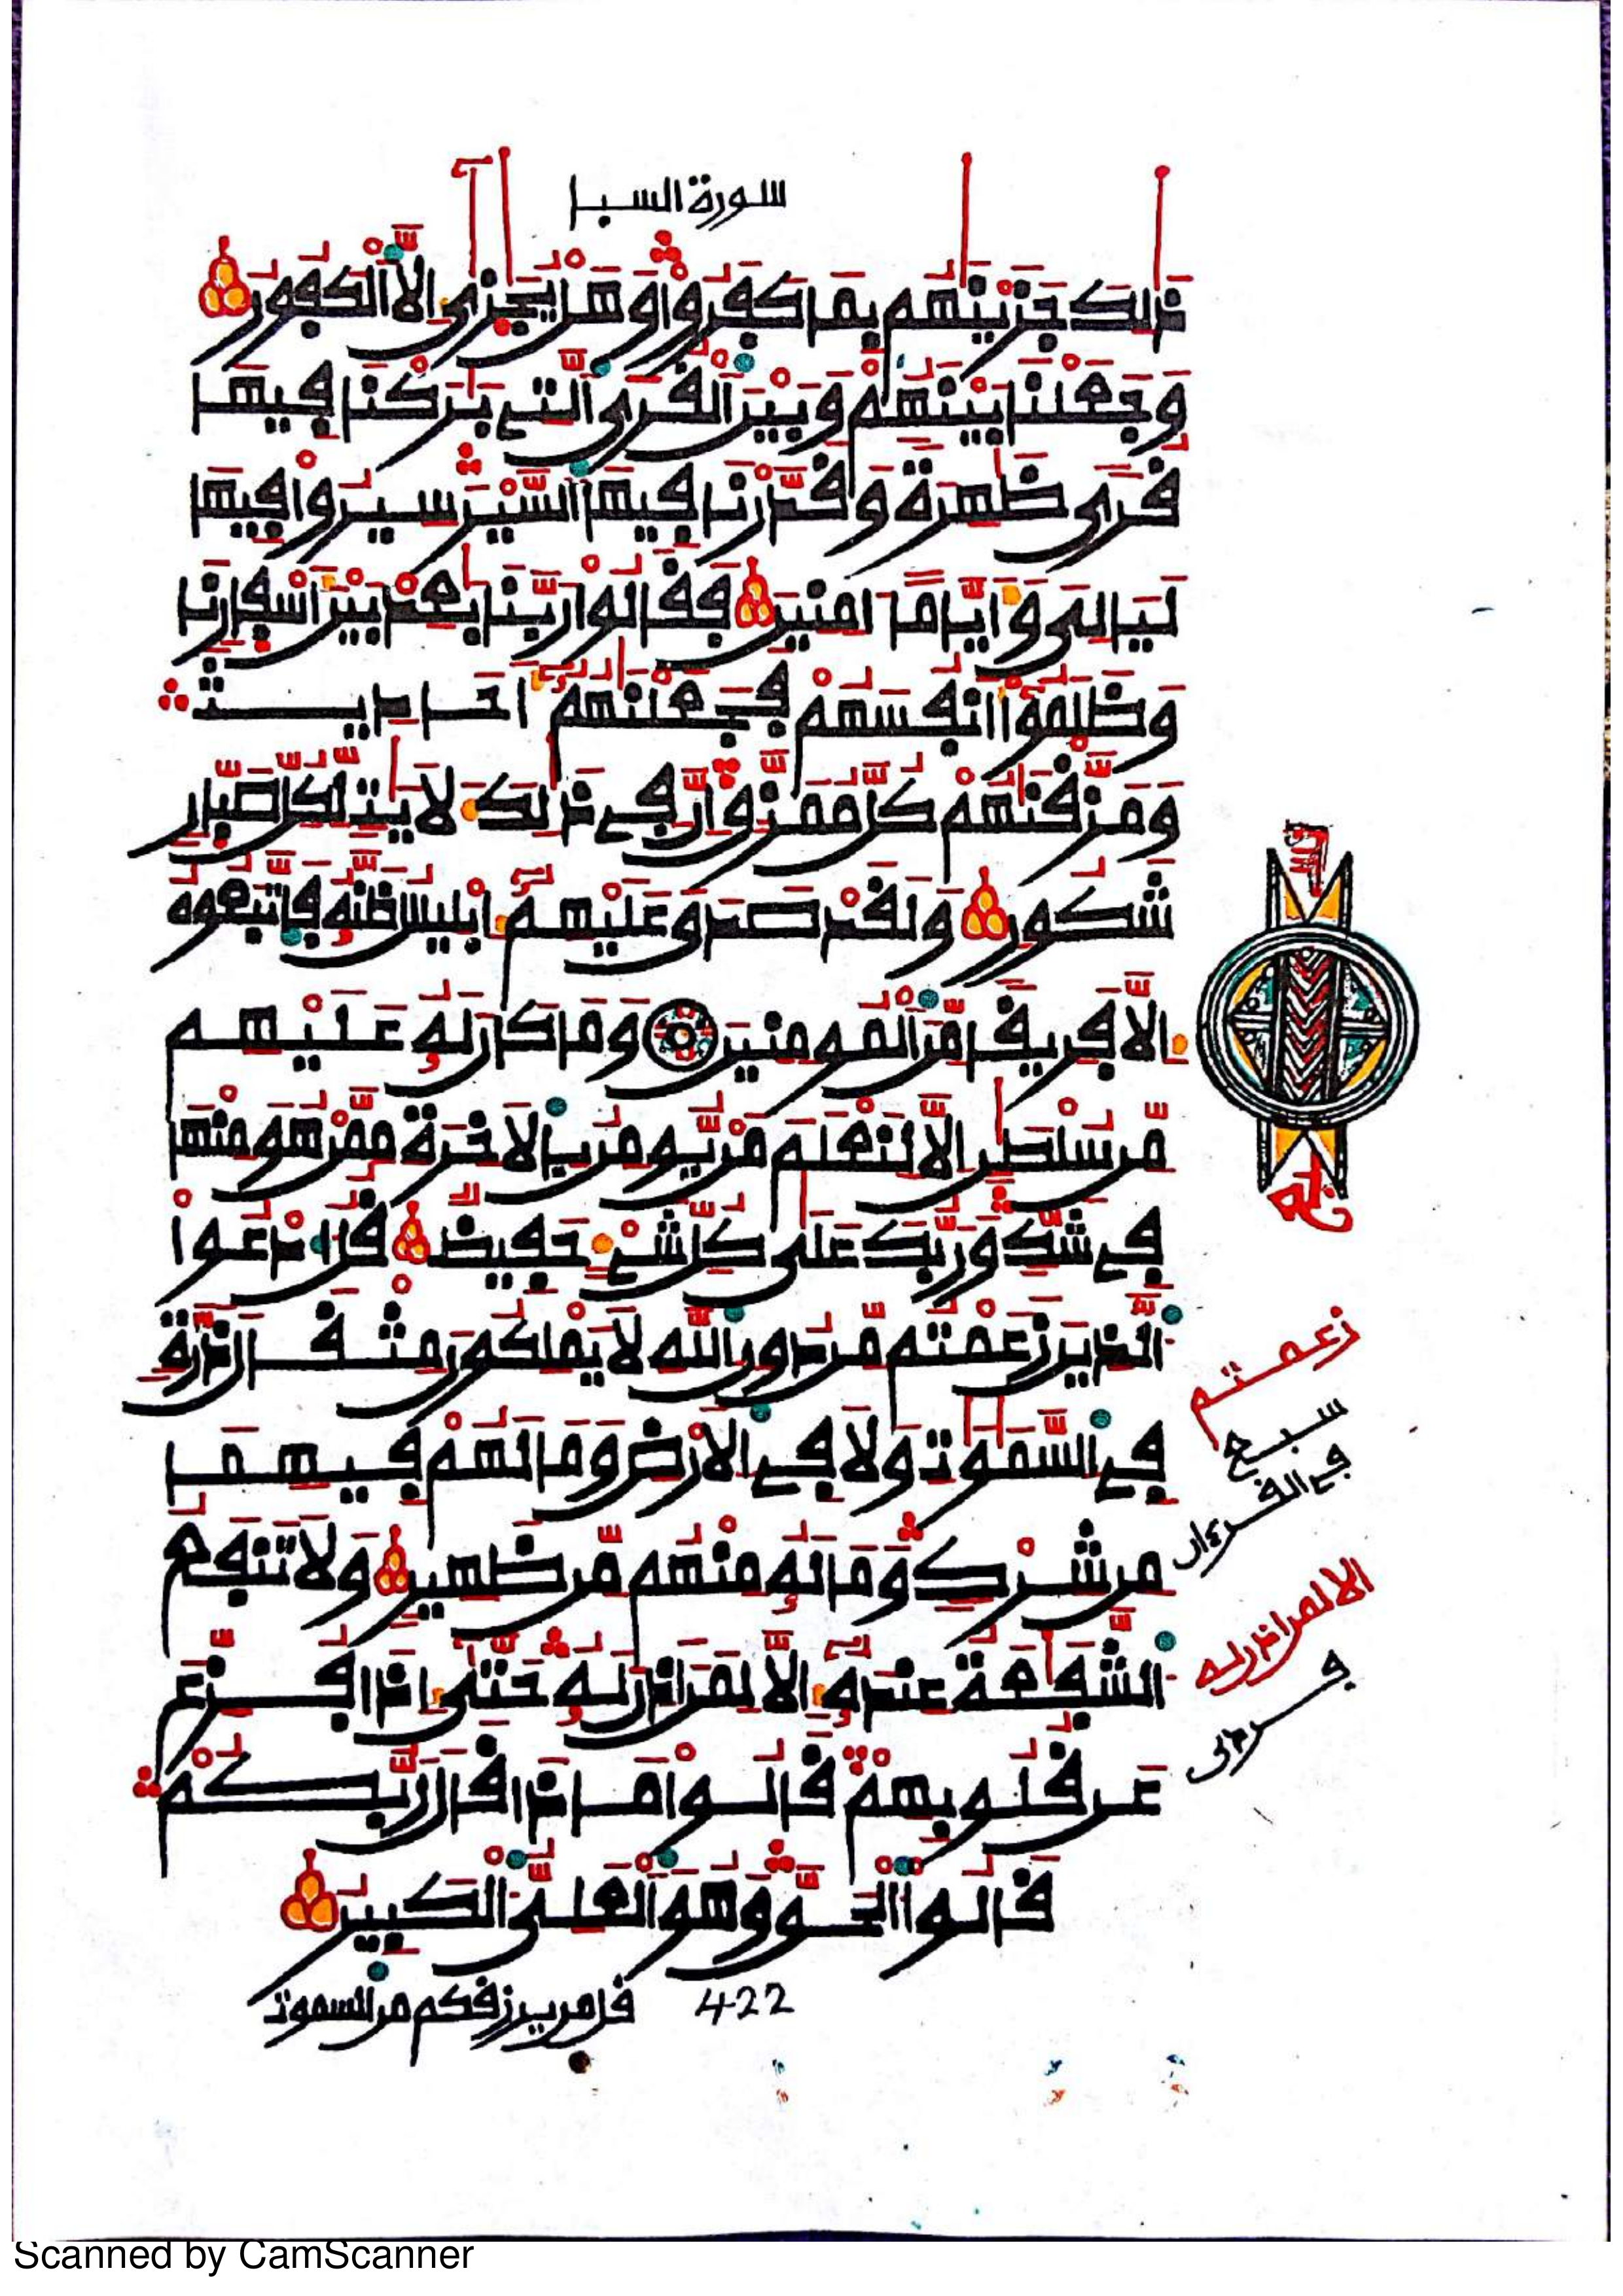 سورة السبا
ذٰلك جزينٰهم بما كفروا وهل يجٰزى إلا الكفور
وجعلنا بينهم وبين القرى التي بٰركنا فيها
قرى ظٰهرة وقدرنا فيها السير سيروا فيها
ليالي وأياما امنين فقالوا ربنا بٰعد بين أسفارنا
وظلموا أنفسهم فجعلنٰهم أحاديث
ومزقنٰهم كل ممزق إن في ذٰلك لأيٰت لكل صبار
شكور ولقد صدق عليهم إبليس ظنه فاتبعوه
إلا فريقا من المومنين وما كان له عليهم
من سلطٰن إلا لنعلم من يومن بالاخرة ممن هو منها
في شك وربك على كل شيء حفيظ قل ادعوا
الذين زعمتم من دون الله لا يملكون مثقال ذرة
في السمٰوٰت ولا في الارض وما لهم فيهما
من شرك وما له منهم من ظهير ولا تنفع
الشفٰعة عنده إلا لمن اذن له حتى إذا فزع
عن قلوبهم قالوا ماذا قال ربكم
قالوا الحق وهو العلي الكبير
422
قل من يرزقكم من السموت
زعمتم
سبع
في القرءان
الا لمن اذن له
Scanned by CamScanner